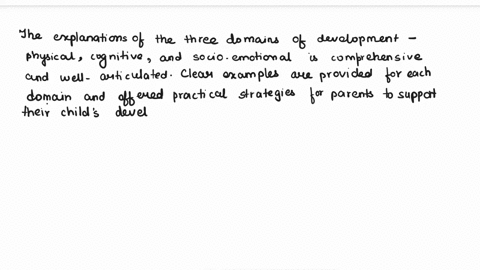 The explanations of the three domains of development –
physical, cognitive, and socio-emotional is comprehensive
and well-articulated. Clear examples are provided for each
domain and offered practical strategies for parents to support
their child's devel